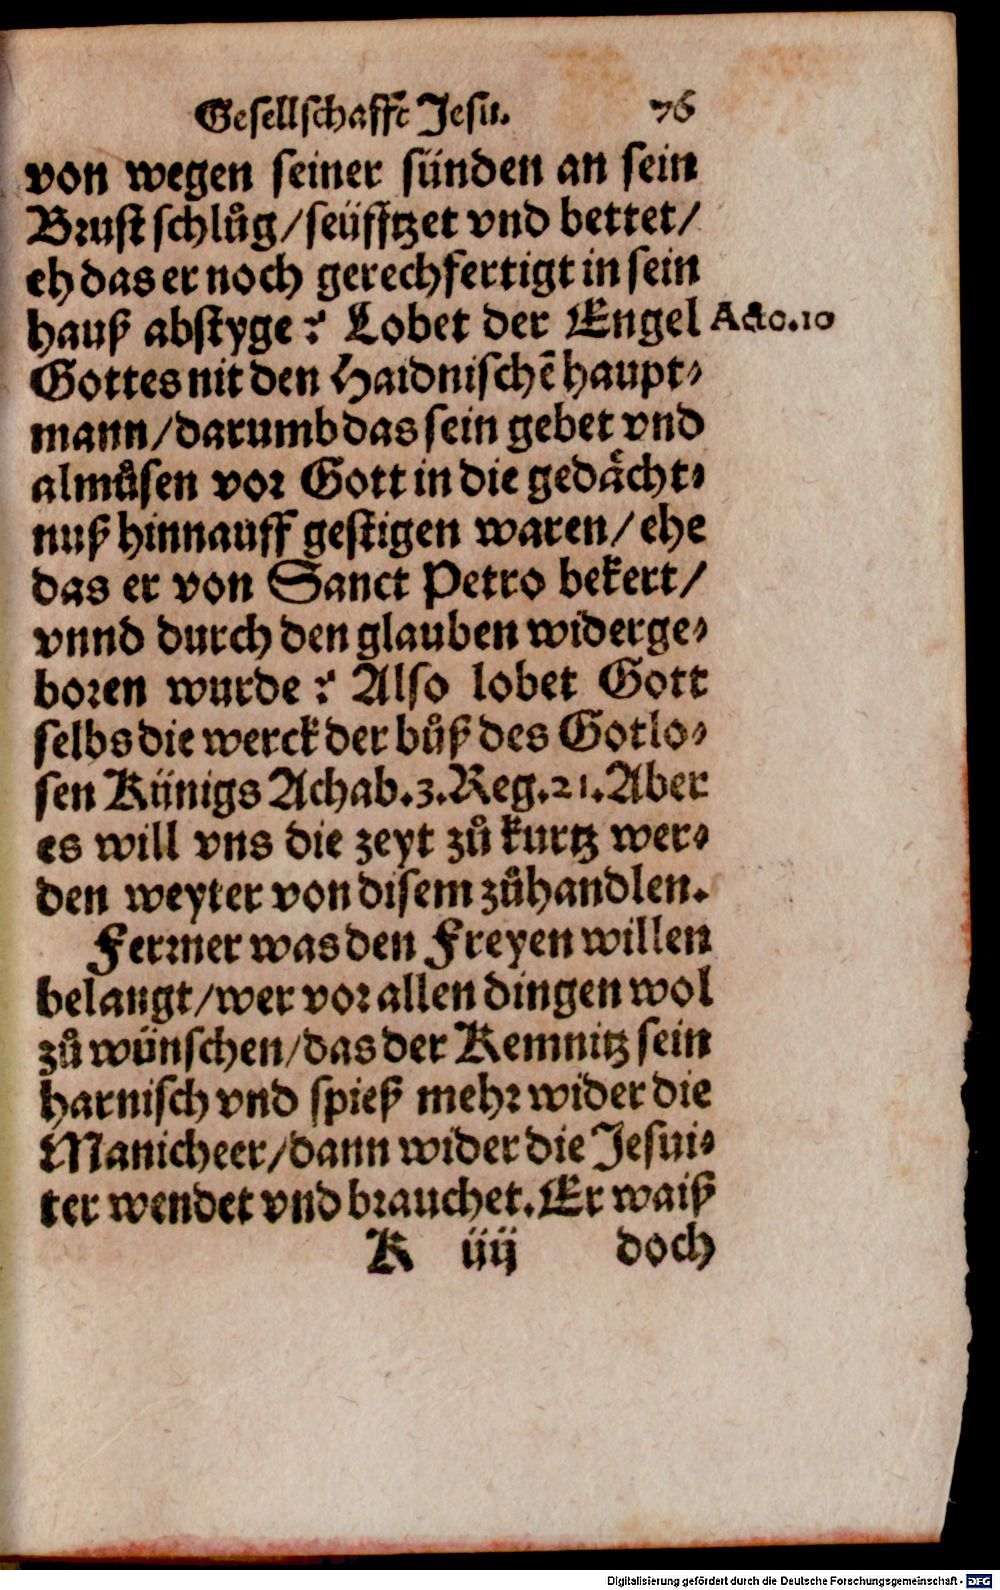 Gesellschafft Jesu. 76
von wegen seiner sünden an sein
Brust schlůg/seüfftzet vnd bettet/
eh das er noch gerechfertigt in sein
hauß abstyge? Lobet der Engel Acto.10
Gottes nit den Haidnischē haupt⸗
mann/darumb das sein gebet vnd
almůsen vor Gott in die gedächt⸗
nuß hinnauff gestigen waren/ehe
das er von Sanct Petro bekert/
vnnd durch den glauben widerge⸗
boren wurde? Also lobet Gott
selbs die werck der bůß des Gotlo⸗
sen Künigs Achab.3.Reg.21.Aber
es will vns die zeyt zů kurtz wer⸗
den weyter von disem zůhandlen.
Ferrner was den Freyen willen
belangt/wer vor allen dingen wol
zů wünschen/das der Kemnitz sein
harnisch vnd spieß mehr wider die
Manicheer/dann wider die Jesui⸗
ter wendet vnd brauchet.Er waiß
K iiij doch
Digitalisierung gefördert durch die Deutsche Forschungsgemeinschaft - DFG